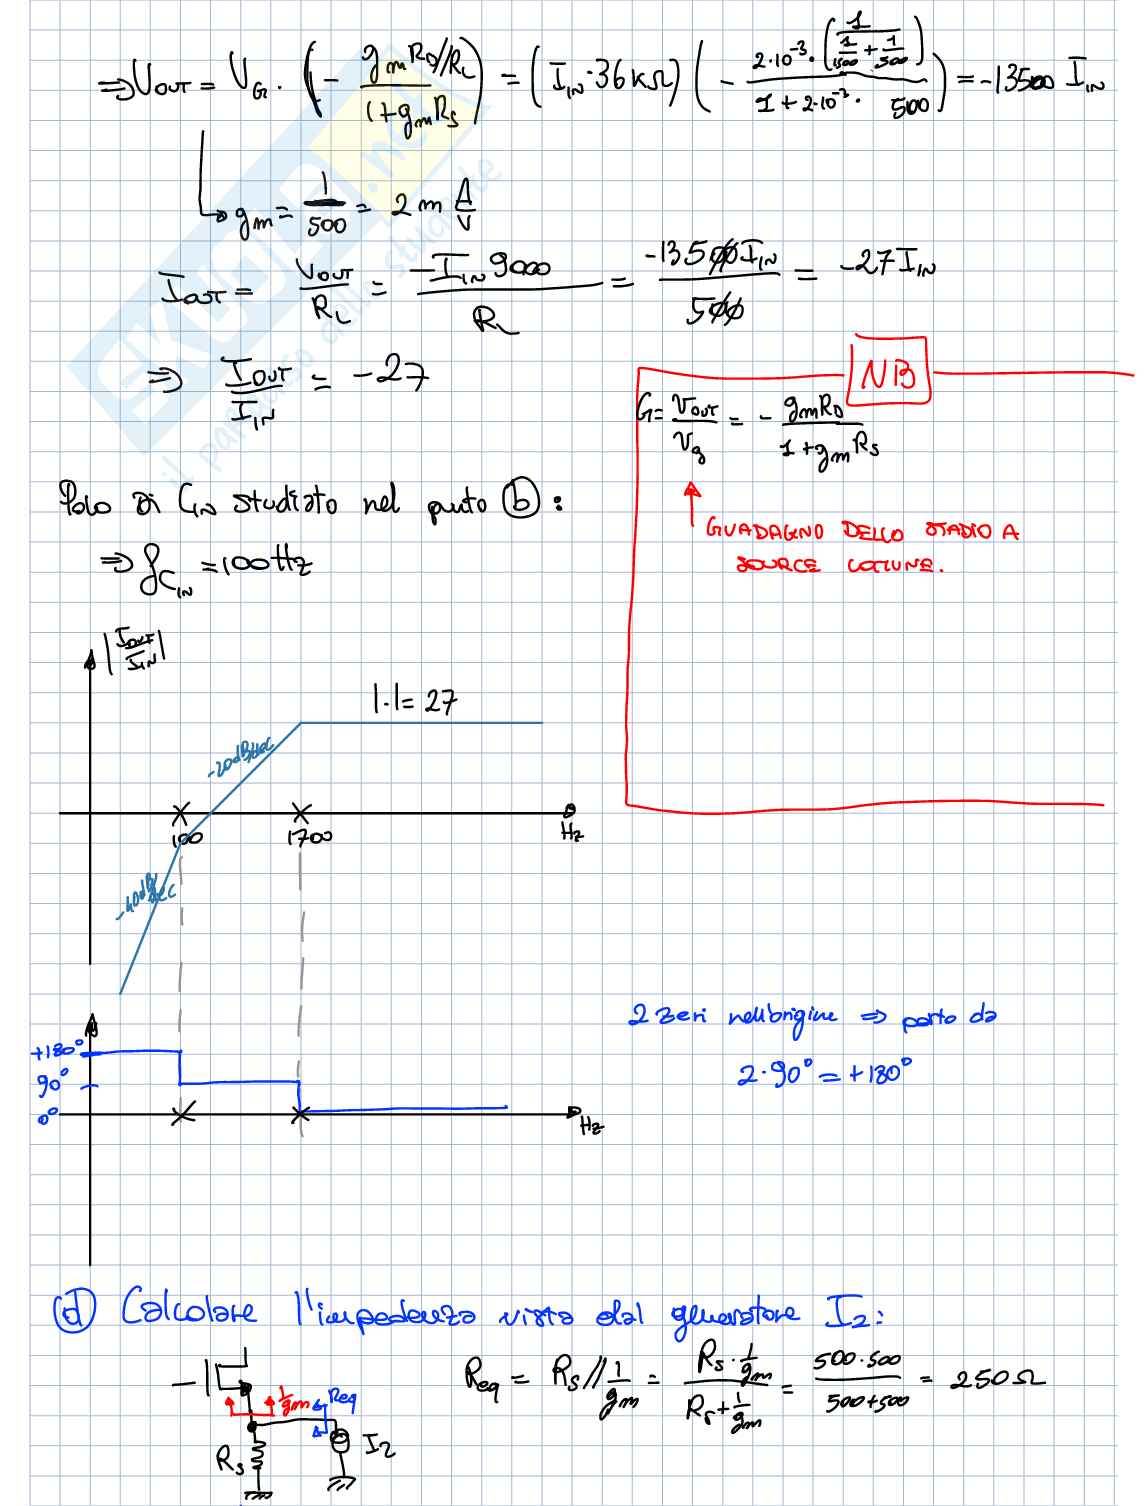 ⇒ V_OUT = V_G · (− g_m R_D//R_L / (1+g_m R_S)) = (I_IN · 36 kΩ) (− 2·10⁻³ · (1 / (1/1500 + 1/500)) / (1 + 2·10⁻³ · 500)) = −13500 I_IN
g_m = 1/500 = 2 m A/V
I_OUT = V_OUT/R_L = −I_IN 9000 / R_L = −13500 I_IN / 500 = −27 I_IN
⇒ I_OUT/I_IN = −27
NB
G = V_OUT/V_g = − g_m R_D / (1 + g_m R_S)
GUADAGNO DELLO STADIO A
SOURCE COMUNE.
Polo di C_IN studiato nel punto (b) :
⇒ f_C_IN = 100 Hz
|I_OUT/I_IN|
|·| = 27
-20dB/dec
100
1700
Hz
-40dB/dec
2 zeri nell'origine ⇒ parto da
2·90° = +180°
+180°
90°
0°
Hz
(d) Calcolare l'impedenza vista dal generatore I_2:
R_eq = R_S // 1/g_m = R_S · 1/g_m / (R_S + 1/g_m) = 500·500 / (500+500) = 250 Ω
1/g_m
Req
R_S
I_2
SKUOLA.net
il paradiso dello studente